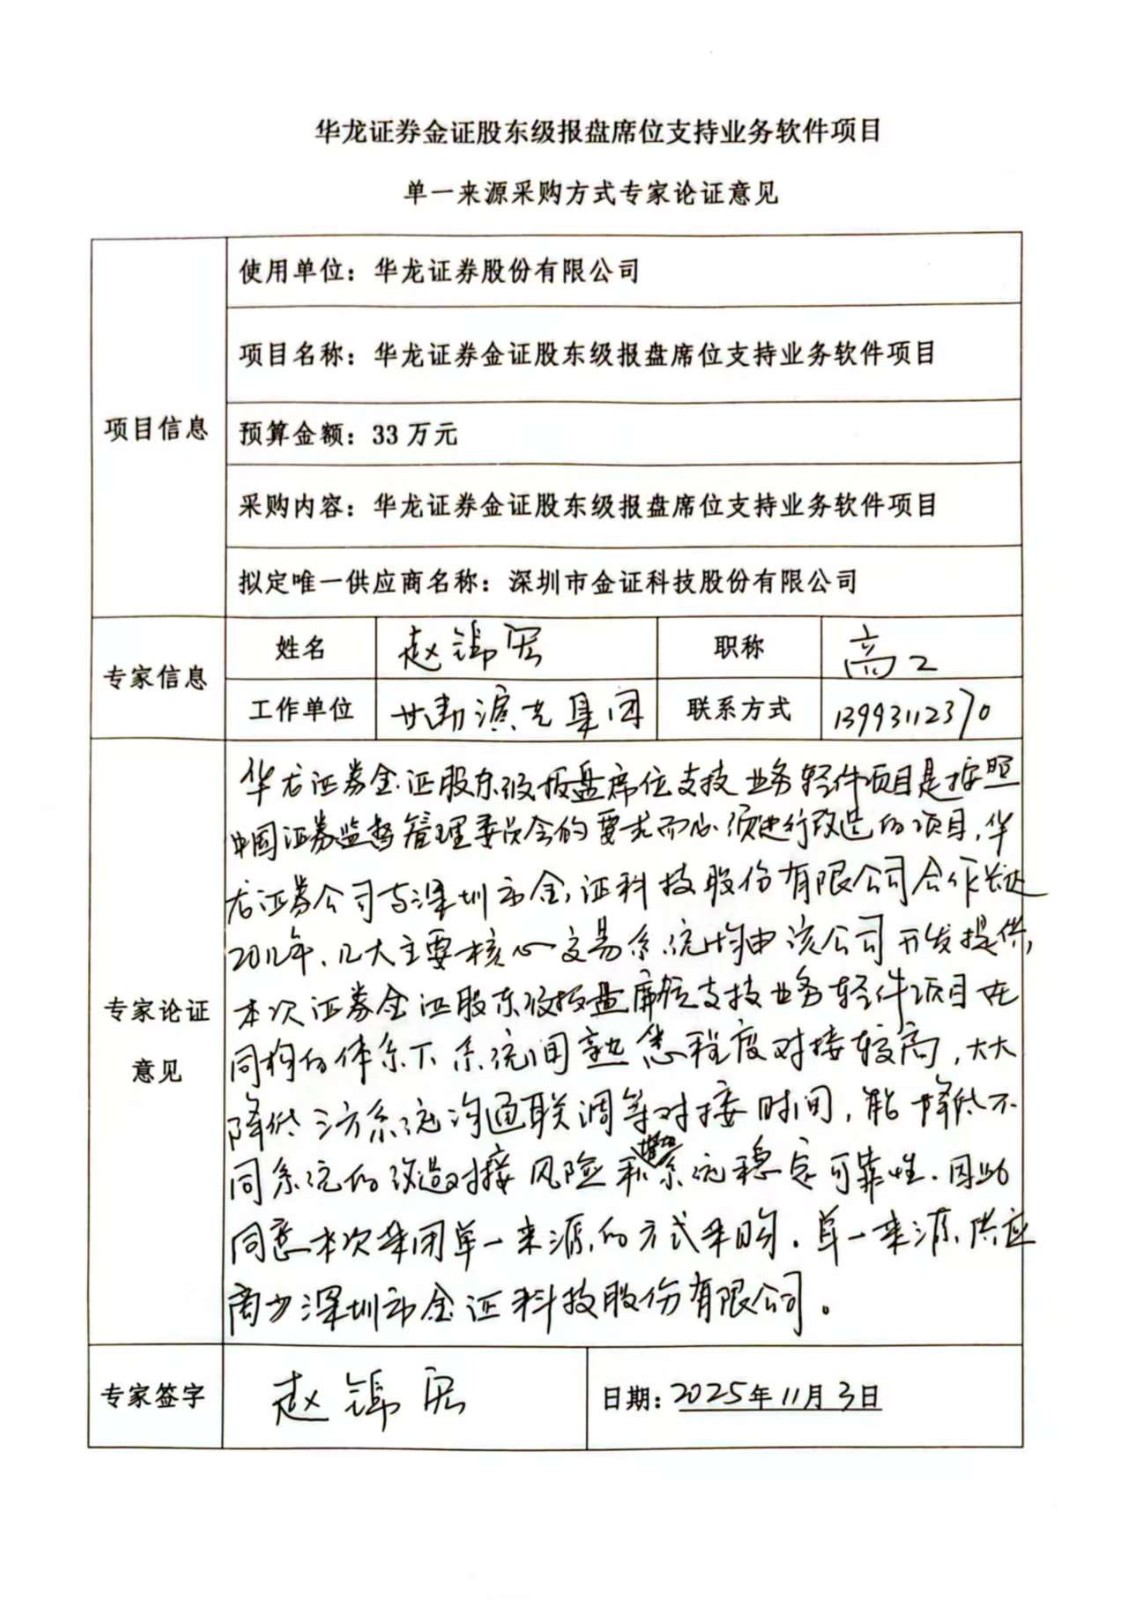 华龙证券金证股东级报盘席位支持业务软件项目
单一来源采购方式专家论证意见
项目信息
使用单位：华龙证券股份有限公司
项目名称：华龙证券金证股东级报盘席位支持业务软件项目
预算金额：33万元
采购内容：华龙证券金证股东级报盘席位支持业务软件项目
拟定唯一供应商名称：深圳市金证科技股份有限公司
专家信息
姓名 赵锦宏 职称 高工
工作单位 甘肃演艺集团 联系方式 13993112370
专家论证
意见
华龙证券金证股东级报盘席位支持业务软件项目是按照
中国证券监督管理委员会的要求而必须进行改造的项目，华
龙证券公司与深圳市金证科技股份有限公司合作长达
年、几大主要核心交易系统均由该公司开发提供，
本次证券金证股东级报盘席位支持业务软件项目在
同构的体系下系统间熟悉程度对接较高，大大
降低三方系统沟通联调等对接时间，能降低不
同系统的改造对接风险和系统稳定可靠性.因此
同意本次采用单一来源的方式采购.单一来源供应
商为深圳市金证科技股份有限公司。
专家签字
赵锦宏
日期：2025年11月3日